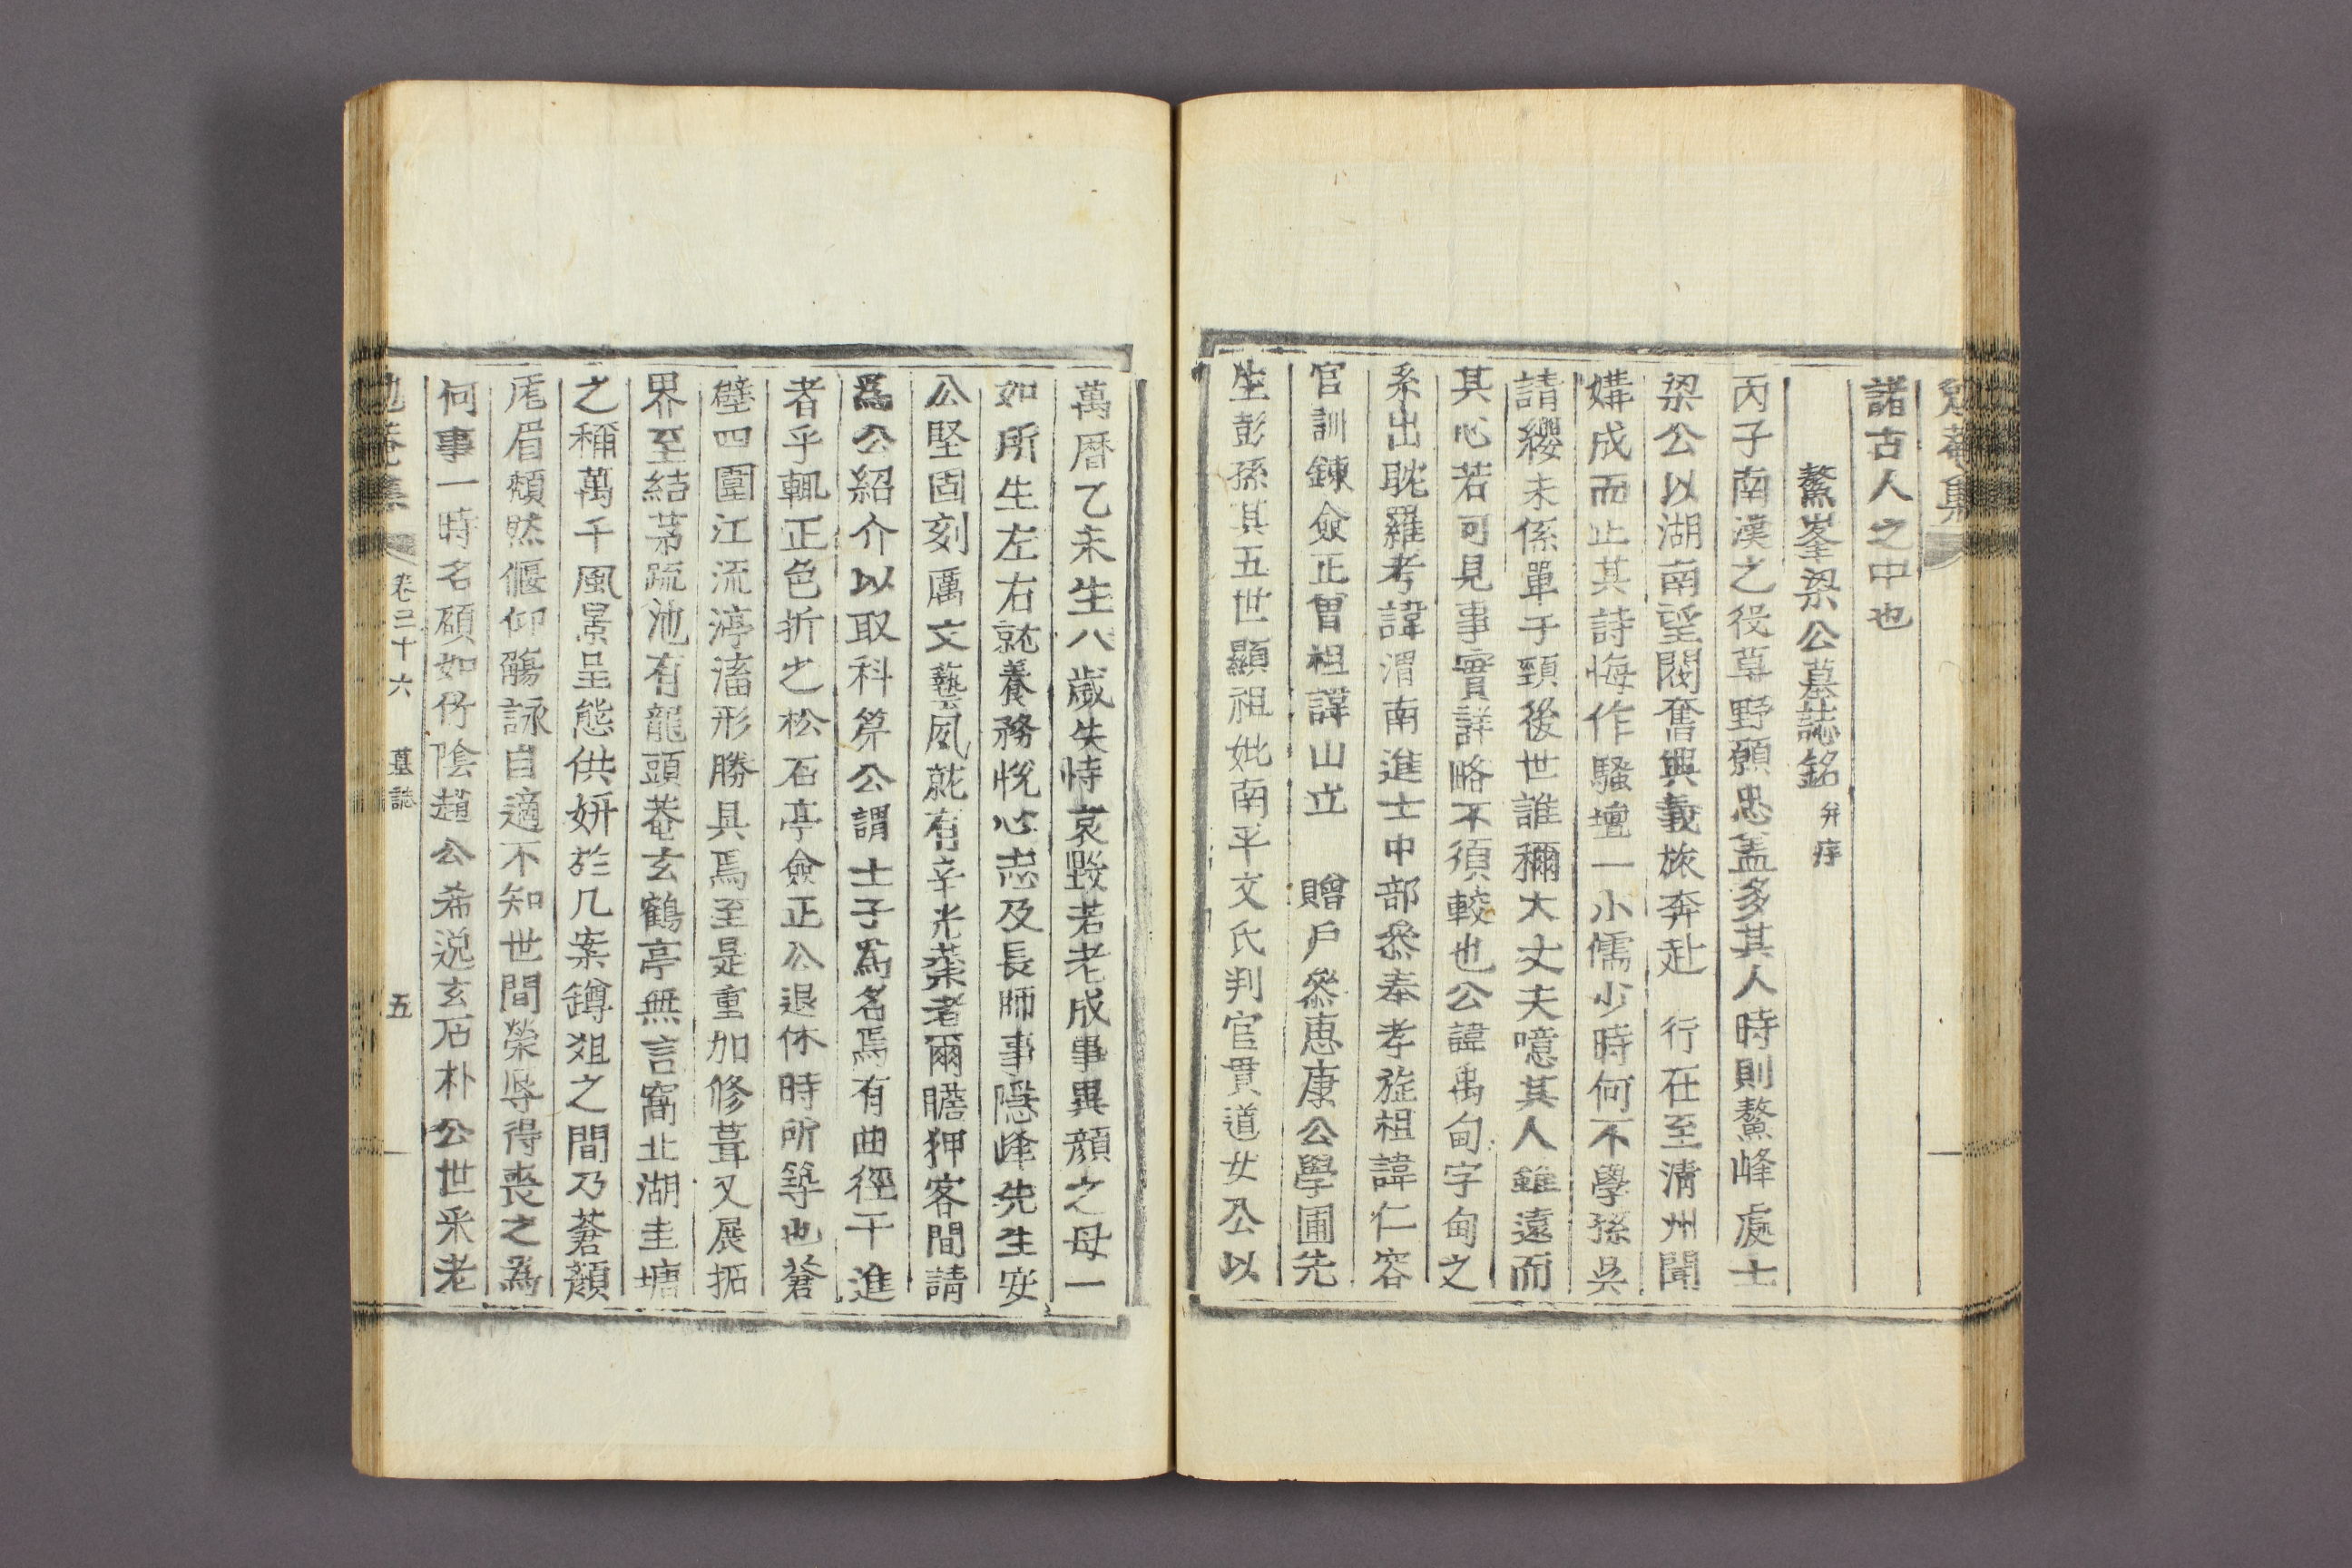 諸古人之中也
鰲峯梁公墓誌銘 幷序
丙子南漢之役草野願忠盖多其人時則鰲峰處士
梁公以湖南望閥奮興義旅奔赴 行在至淸州聞
媾成而止其詩悔作騷壇一小儒少時何不學孫吳
請纓未係單于頸後世誰稱大丈夫噫其人雖遠而
其心若可見事實詳略不須較也公諱禹甸字甸之
系出耽羅考諱渭南進士中部叅奉孝旌祖諱仁容
官訓鍊僉正曾祖諱山立 贈戶叅惠康公學圃先
生彭孫其五世顯祖妣南平文氏判官貫道女公以
萬曆乙未生八歲失恃哀毀若老成事異顔之母一
如所生左右就養務悅心志及長師事隱峰先生安
公堅固刻厲文藝夙就有辛光業者爾瞻狎客間請
爲公紹介以取科第公謂士子爲名焉有曲徑干進
者乎輒正色折之松石亭僉正公退休時所築也蒼
壁四圍江流渟滀形勝具焉至是重加修葺又展拓
界至結茅疏池有龍頭菴玄鶴亭無言窩北湖圭塘
之稱萬千風景呈態供姸於几案罇俎之間乃蒼顔
厖眉頹然偃仰觴詠自適不知世間榮辱得喪之爲
何事一時名碩如竹陰趙公希逸玄石朴公世采老
卷三十六 墓誌 五